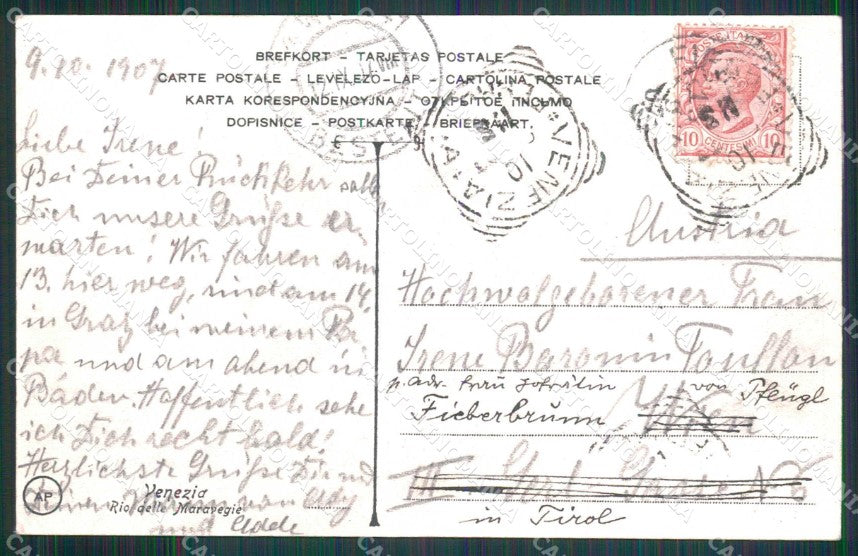 BREFKORT – TARJETAS POSTALE
CARTE POSTALE – LEVELEZŐ-LAP – CARTOLINA POSTALE
KARTA KORESPONDENCYJNA – ОТКРЫТОЕ ПИСЬМО
DOPISNICE – POSTKARTE – BRIEFKAART.
9. 10. 1907
Liebe Irene!
Bei Deiner Rückkehr solle
Dich unsere Grüße er
warten! Wir fahren am
13. hier weg, sind am 14.
in Graz bei meinem Pa
pa und am abend in
Baden. Hoffentlich sehe
ich Dich recht bald!
Herzlichste Grüße Dir und
von Edy
und
Venezia
Rio delle Maravegie
AP
POSTE ITALIANE
10 CENTESIMI 10
VENEZIA
Austria
Hochwolgeborener Frau
Irene Baronin
p. adr. Frau Hofrätin von Pflügl
Fieberbrunn Wien
III
in Tirol
CARTOLINOMANIA